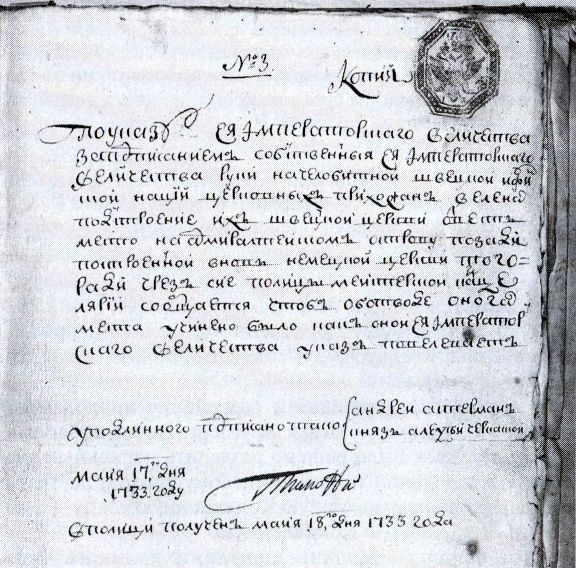 № 3
Копия
По указу Ея Императоршаго величества
За подписаниемъ собственныя Ея Императоршаго
величества руки на челобитной швецкой и фин
ской нацiи церковныхъ прихожан велено
под строение ихъ швецкой церкви отвесть
место на адмиралтейскомъ острову позади
построенной вновь немецкой церкви про то
ради чрез сие полицъ мейстерской канце
лярiи сообщается чтоб об отводе оного
места учинено было какъ оной Ея Император
скаго величества указъ повелеваетъ
у подлинного подписано тако
андреи остерманъ
князь алексеи черкаской
маия 17 дня
1733 году
В полицiи полученъ маия 18 дня 1733 года